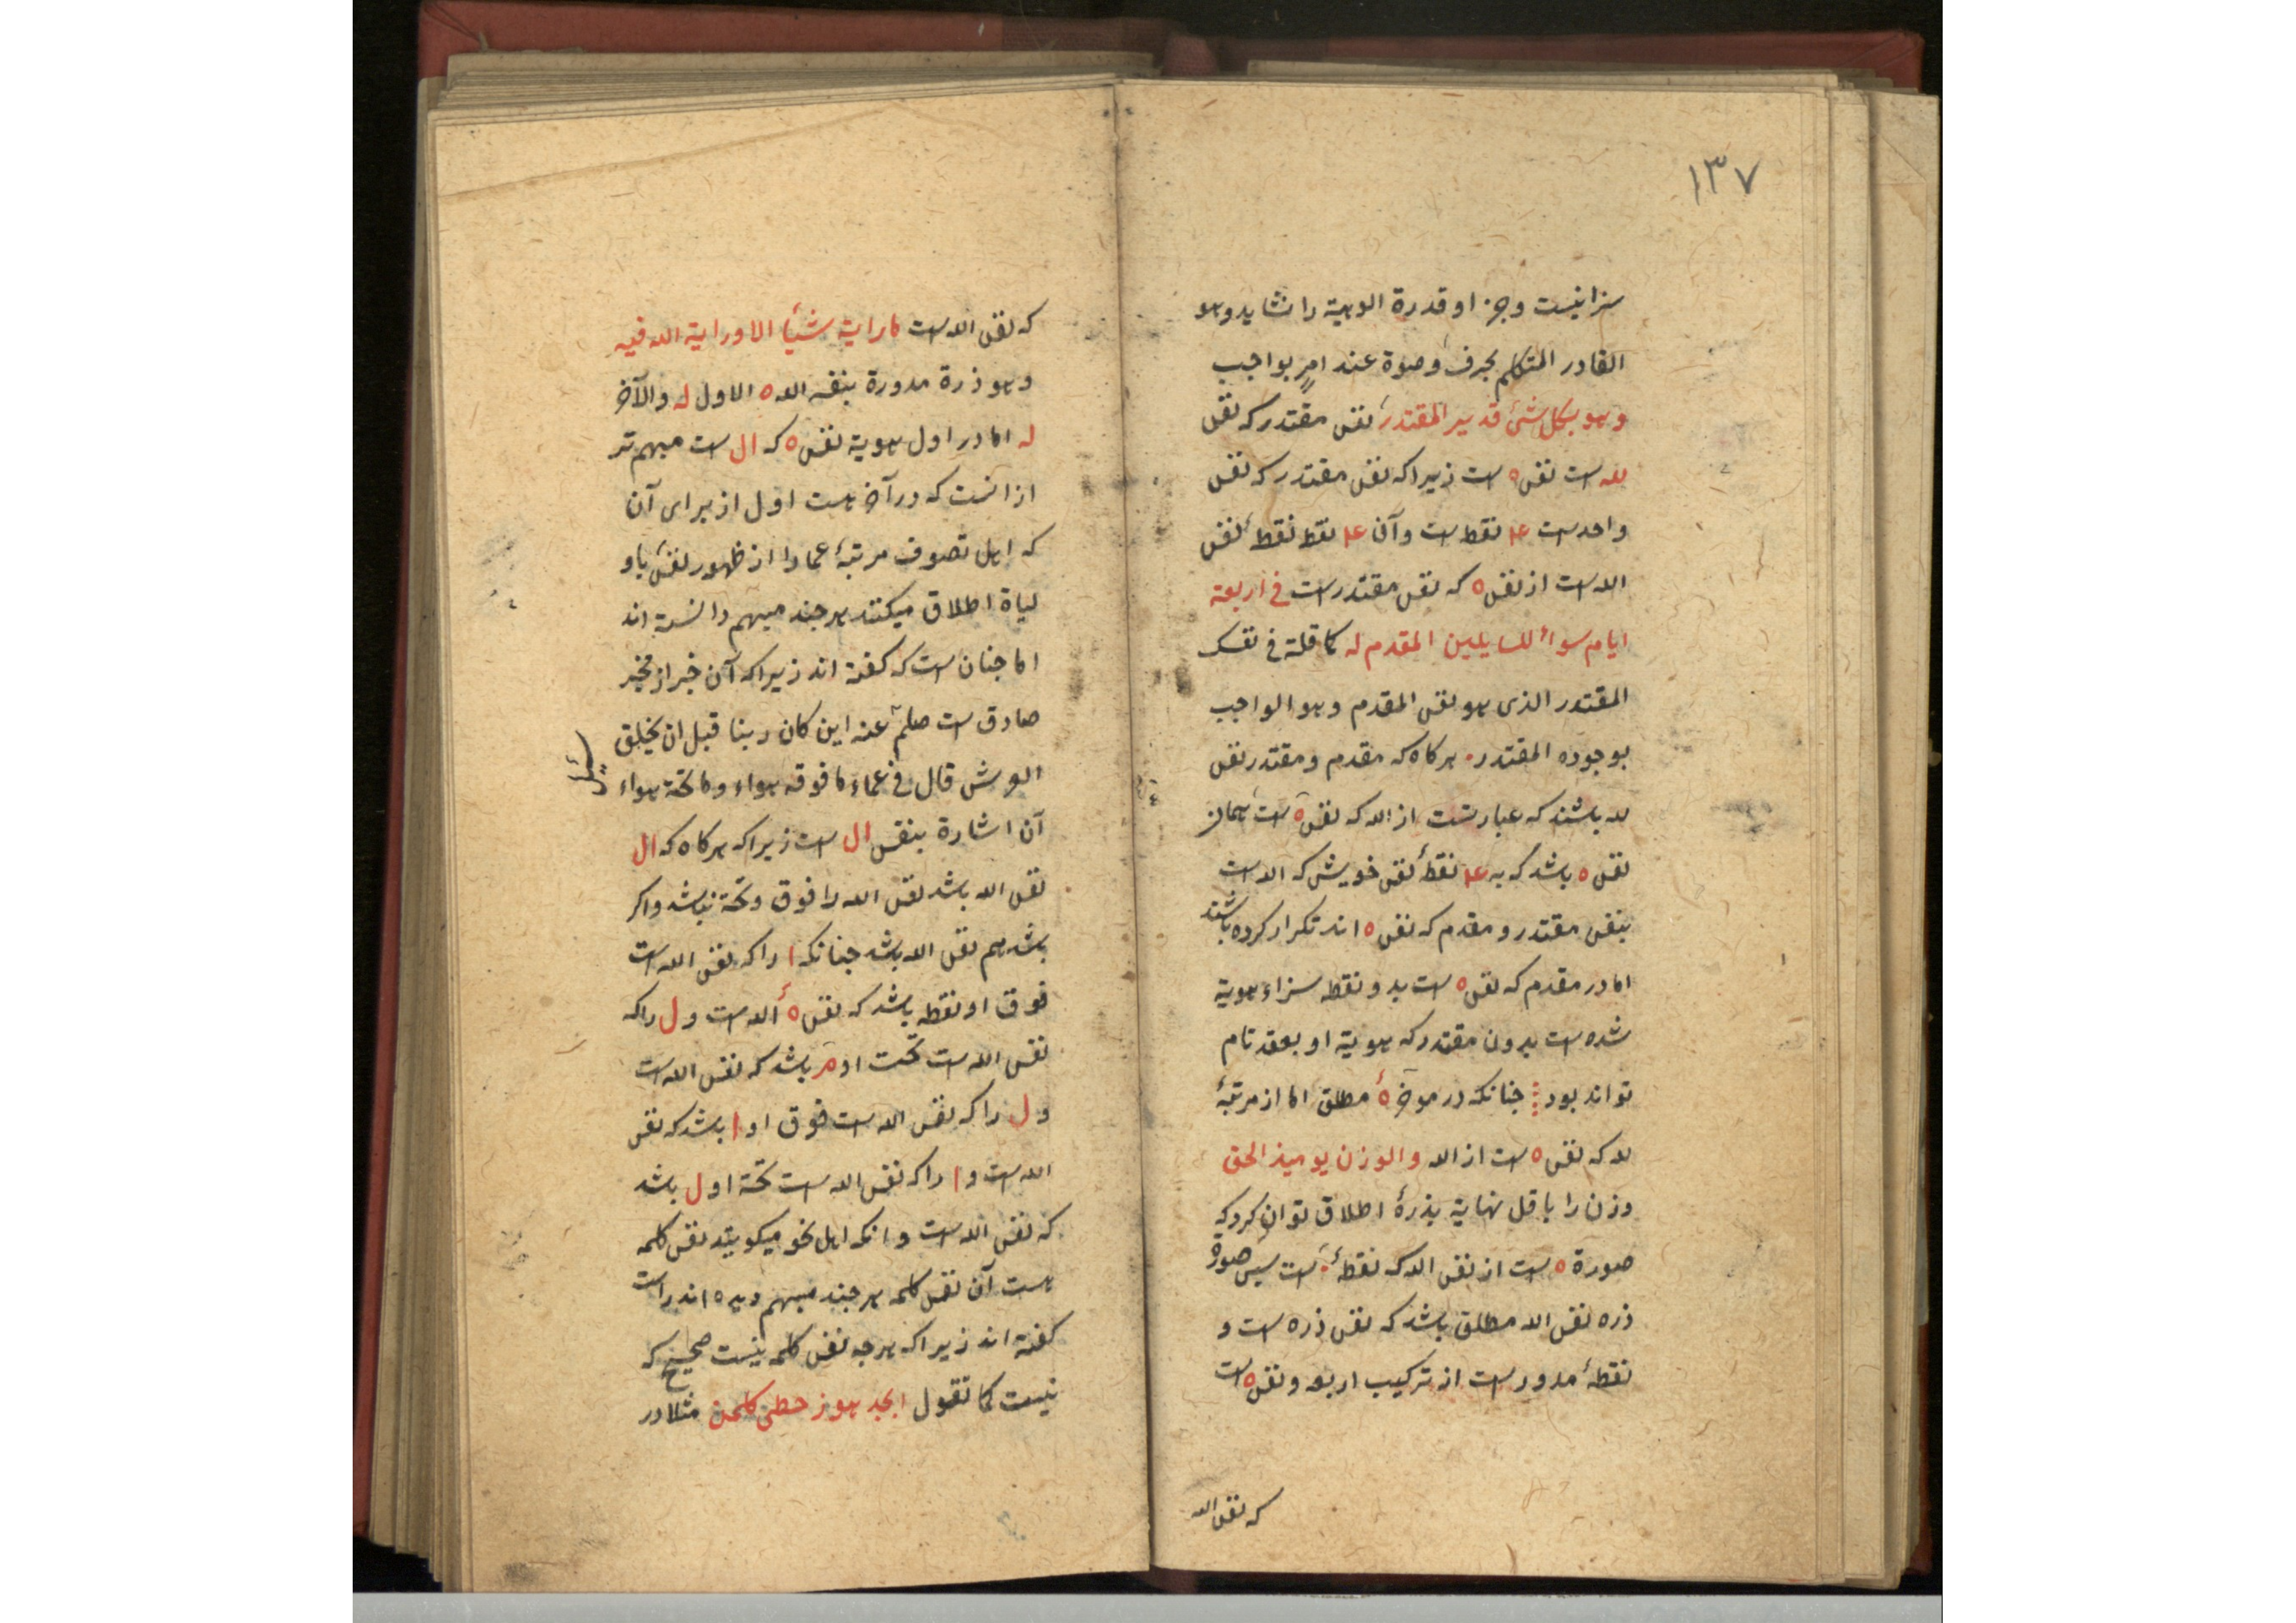 ۱۳۷
سزا نیست وجز او قدرة الوهیة را نشاید وهو
القادر المتکلم بحرف وصوة عند امر بواجب
وهو بکل شئ قدیر المقتدر نفس مقتدر که نفس
لله است نفس ه است زیرا که نفس مقتدر که نفس
واحد است ۱۴ نقط است وآن ۱۴ نقط نقطهٔ نفس
الله است از نفس ه که نفس مقتدر است فی اربعة
ایام سواء للسایلین المقدم له کما قلة فی نفسک
المقتدر الذی هو نفس المقدم وهو الواجب
بوجوده المقتدر هرکاه که مقدم و مقتدر نفس
لله باشند که عبارتست از الله که نفس ه است همان
نفس ه باشد که به ۱۴ نقطهٔ نفس خویش که الله است
بنفس مقتدر و مقدم که نفس ه اند تکرار کرده باشند
اما در مقدم که نفس ه است بدو نقطه سزاء هویة
شده است بدون مقتدر که هویة او بعقد تام
تواند بود جنانکه در موخر هٔ مطلق اما از مرتبهٔ
لله که نفس ه است از الله والوزن یومیذ الحق
وزن را باقل نهایة بذرهٔ اطلاق توان کرد که
صورة ه است از نفس الله که نقطهٔ است سپس صورة
ذره نفس الله مطلق باشد که نفس ذره است و
نقطهٔ مدور است از ترکیب اربعه ونفس ه است
که نفس الله
که نفس الله است ما رایة شیأ الا ورایة الله فیه
وهو ذرة مدورة بنفسه الله ه الاول له والآخر
له اما در اول هویة نفس ه که ال است مبهم تر
از انست که در آخر هست اول از برای آن
که اهل تصوف مرتبهٔ عما را از ظهور نفس باو
لیاة اطلاق میکنند هر جند مبهم دانسته اند
اما جنان است که کفته اند زیرا که آن خبر از مخبر
صادق است صلعم عنه این کان ربنا قبل ان یخلق
العرش قال فی عماء ما فوقه هواء وما تحته هواء
سئل
آن اشارة بنفس ال است زیرا که هرکاه که ال
نفس الله باشد نفس الله را فوق وتحة نباشد واکر
باشد هم نفس الله باشد جنانکه ا را که نفس الله است
فوق او نقطه باشد که نفس هٔ الله است و ل را که
نفس الله است تحت او م باشد که نفس الله است
و ل را که نفس الله است فوق او ا باشد که نفس
الله است و ا را که نفس الله است تحة او ل باشد
که نفس الله است و انکه اهل نحو میکویند نفس کلمه
هست آن نفس کلمه هر جند مبهم دیده اند راست
کفته اند زیرا که هرجه نفس کلمه نیست صحیح که
نیست کما تقول ابجد هوز حطی کلمن مثلا در